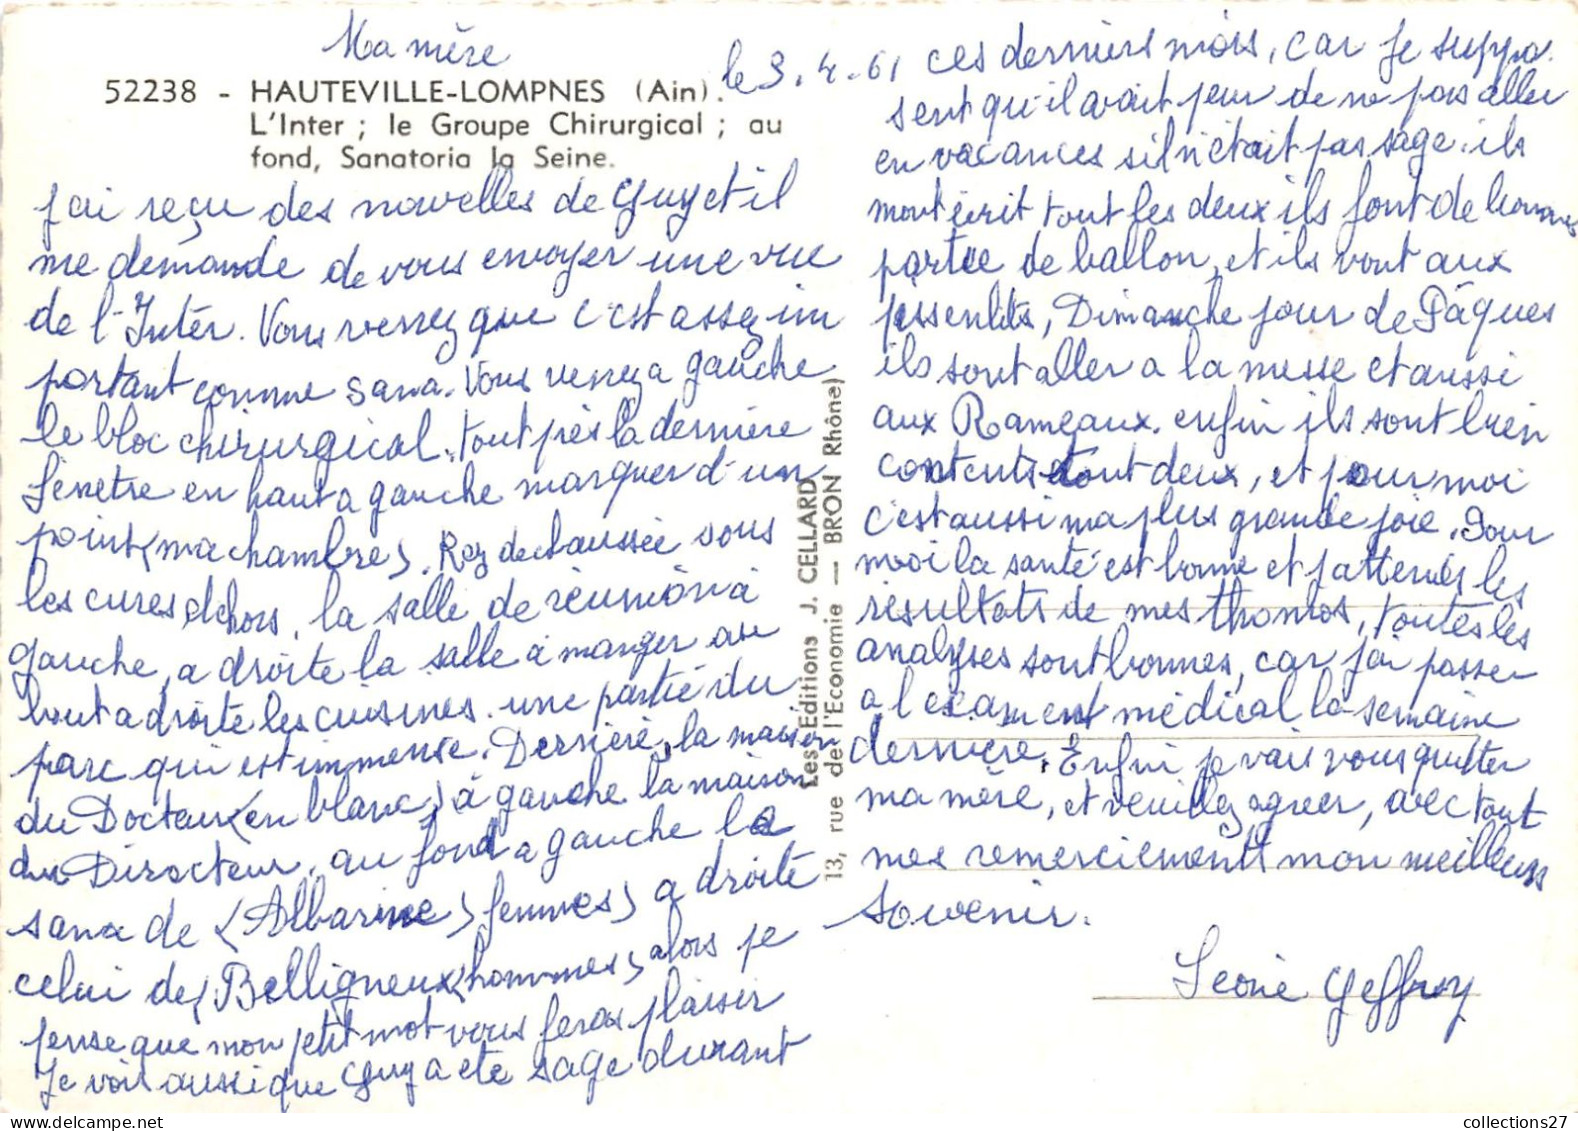 Ma mère
le 3.4.61
52238 - HAUTEVILLE-LOMPNES (Ain).
L'Inter ; le Groupe Chirurgical ; au
fond, Sanatoria la Seine.
j'ai reçu des nouvelles de Guy et il
me demande de vous envoyer une vue
de l'Intér. Vous verrez que c'est assez im
portant comme sana. Vous verrez a gauche
le bloc chirurgical. tout près la dernière
fenêtre en haut a gauche marquer d'un
point (ma chambre). Rez de chaussée sous
les cures dehors, la salle de réunion à
gauche, a droite la salle à manger au
bout a droite les cuisines. une partie du
parc qui est immense. Derrière, la maison
du Docteur (en blanc) à gauche la maison
du Directeur, au fond a gauche le
sana de (Albarine) femmes) a droite
celui de (Belligneux (hommes) alors je
pense que mon petit mot vous feras plaisir
Je vois aussi que Guy a été sage durant
Les Editions J. CELLARD
13, rue de l'Economie — BRON Rhône)
ces derniers mois, car je suppo.
sent qu'il avait peur de ne pas aller
en vacances s'il n'était pas sage. ils
mont écrit tout les deux ils font de bonnes
partie de ballon, et ils vont aux
pissenlits, Dimanche jour de Pâques
ils sont aller a la messe et aussi
aux Rameaux. enfin ils sont bien
contents tout deux, et pour moi
c'est aussi ma plus grande joie. Pour
moi la santé est bonne et j'attends les
résultats de mes thomos, toutes les
analyses sont bonnes, car j'ai passer
a l'examen médical la semaine
dernière. Enfin je vais vous quitter
ma mère, et veuillez agréer, avec tout
mes remerciements mon meilleurs
souvenir.
Léonie Geffroy
collections27